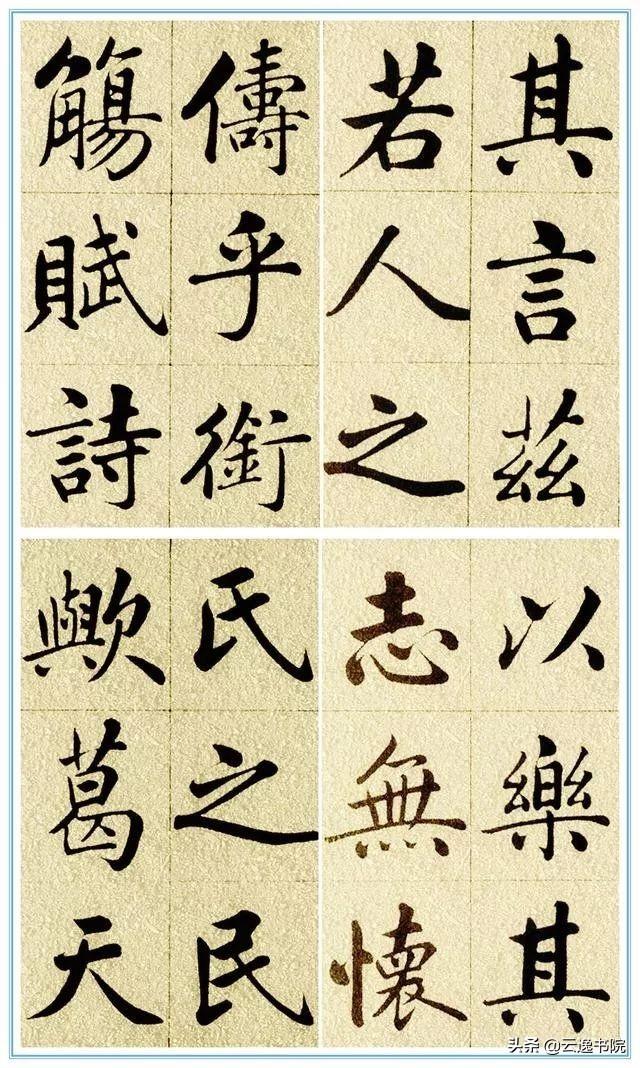 其言茲
若人之
儔乎銜
觴賦詩
以樂其
志無懷
氏之民
歟葛天
头条 @云逸书院